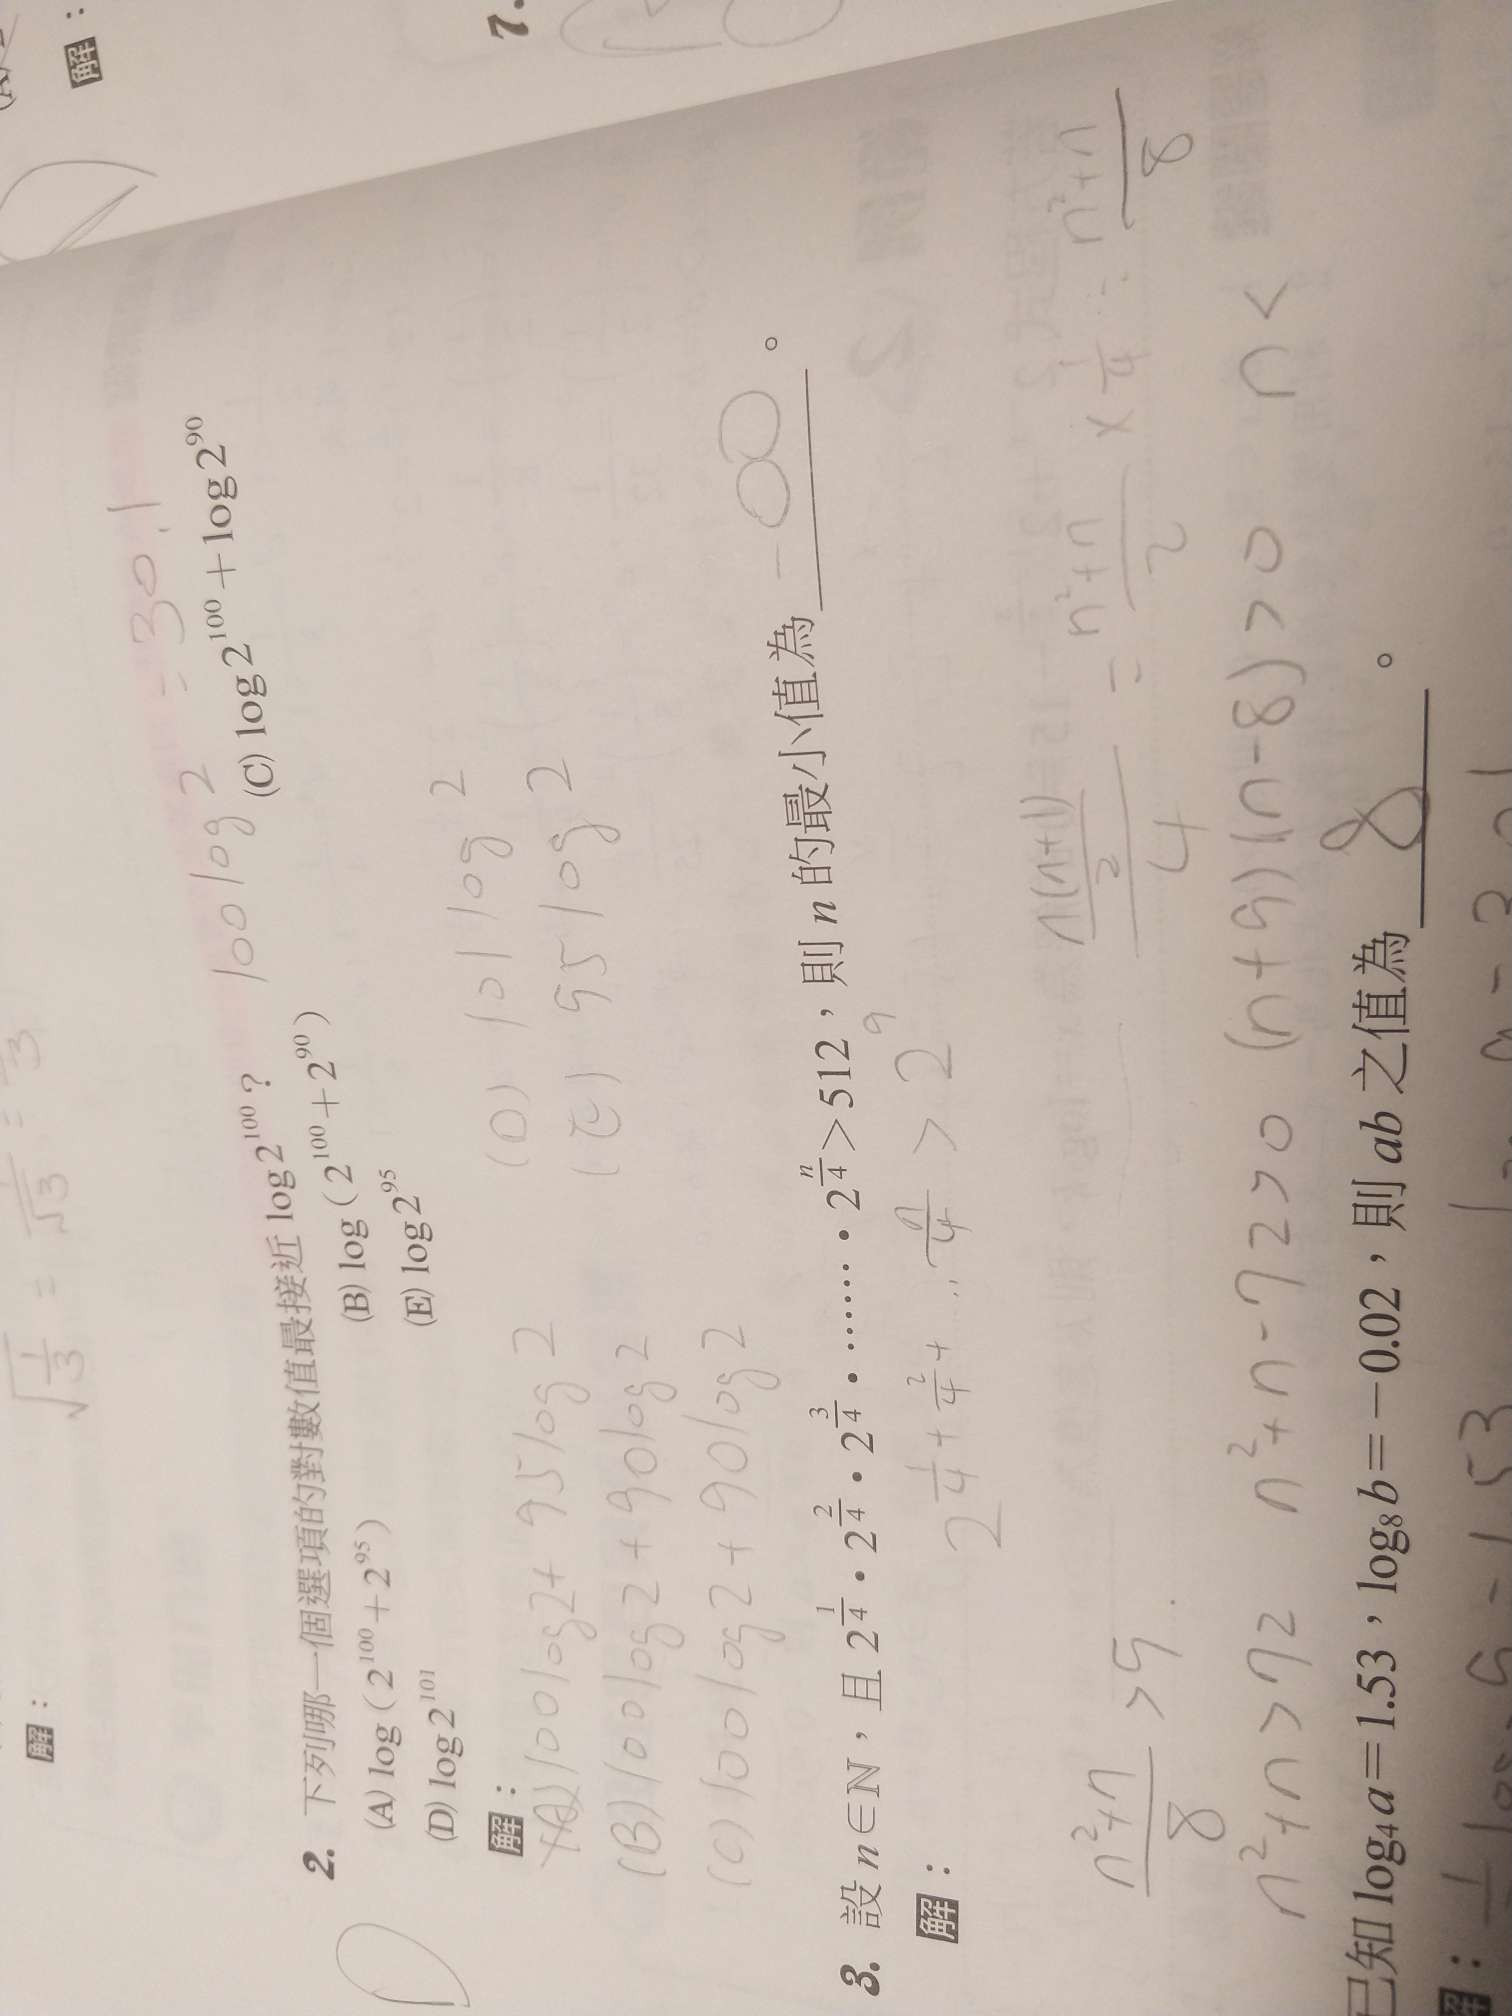 解：
7.
√(1/3) = 1/√3 =
解：
100 log 2 = 30.1
2. 下列哪一個選項的對數值最接近 log2¹⁰⁰？
(A) log（2¹⁰⁰＋2⁹⁵） (B) log（2¹⁰⁰＋2⁹⁰） (C) log2¹⁰⁰＋log2⁹⁰
(D) log2¹⁰¹ (E) log2⁹⁵
D
解：
(A) 100 log 2 + 95 log 2 (D) 101 log 2
(B) 100 log 2 + 90 log 2 (E) 95 log 2
(C) 100 log 2 + 90 log 2
3. 設 n∈ℕ，且 2^(1/4)・2^(2/4)・2^(3/4)・⋯⋯・2^(n/4)＞512，則 n 的最小值為 -∞ 。
解：
2^(1/4 + 2/4 + ... n/4) > 2⁹
(n(n+1)/2)/4 = (n²+n)/2 × 1/4 = (n²+n)/8
(n²+n)/8 > 9
n²+n>72 n²+n-72>0 (n+9)(n-8)>0 n<
已知 log₄a＝1.53，log₈b＝－0.02，則 ab 之值為 8 。
解：